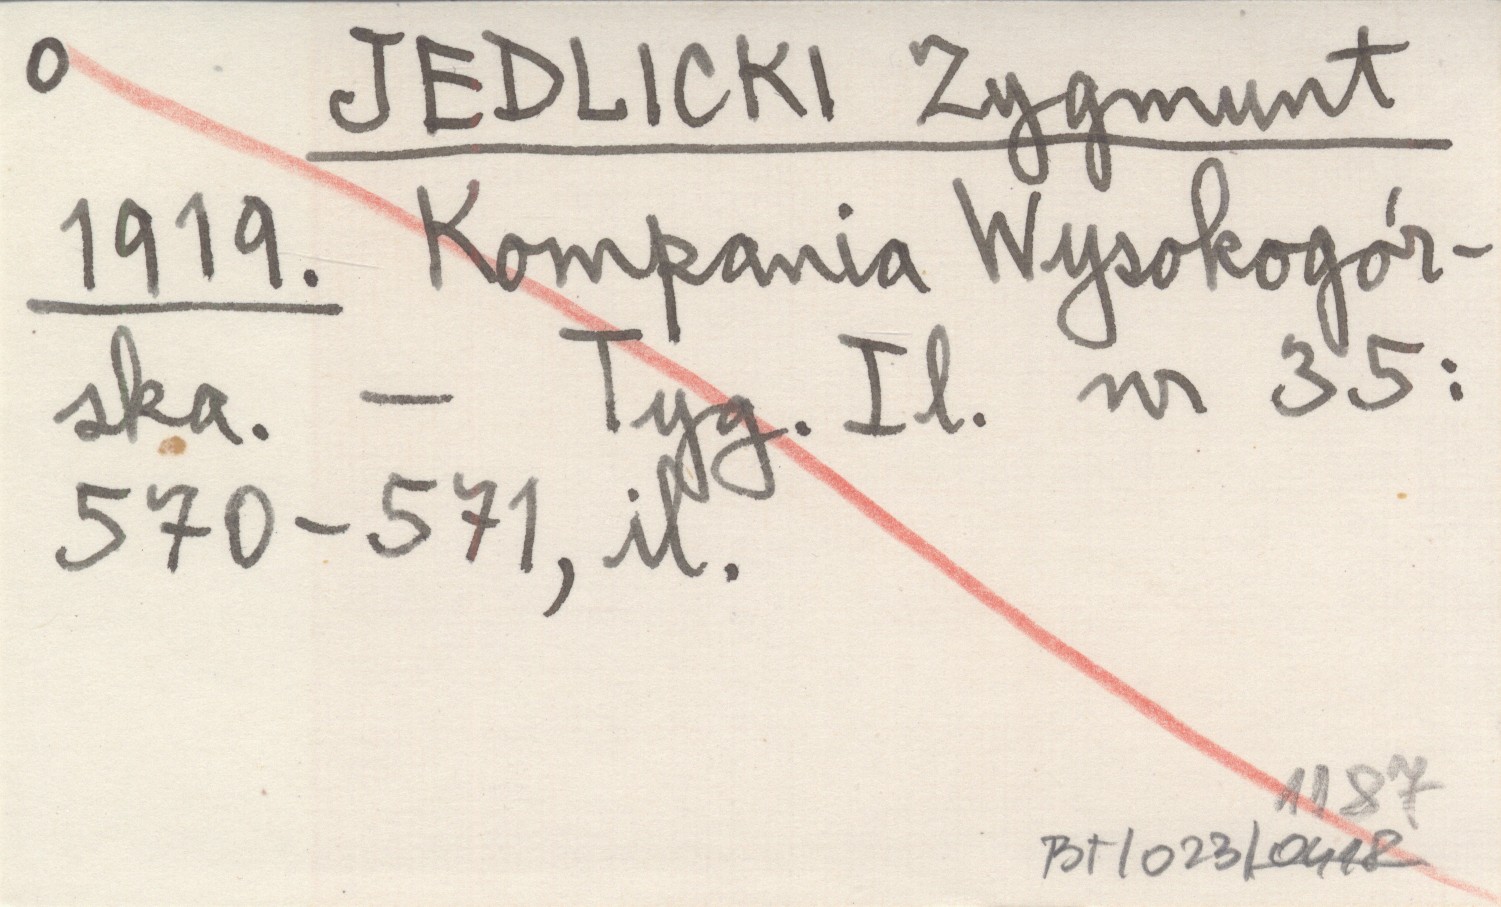 o JEDLICKI Zygmunt
1919. Kompania Wysokogór-
ska. — Tyg. Il. nr 35:
570-571, il.
1187
BT/023/0418